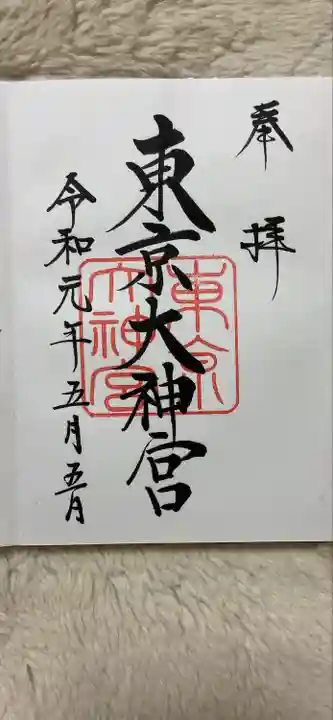 奉拝
東京大神宮
令和元年五月五日
東京大神宮